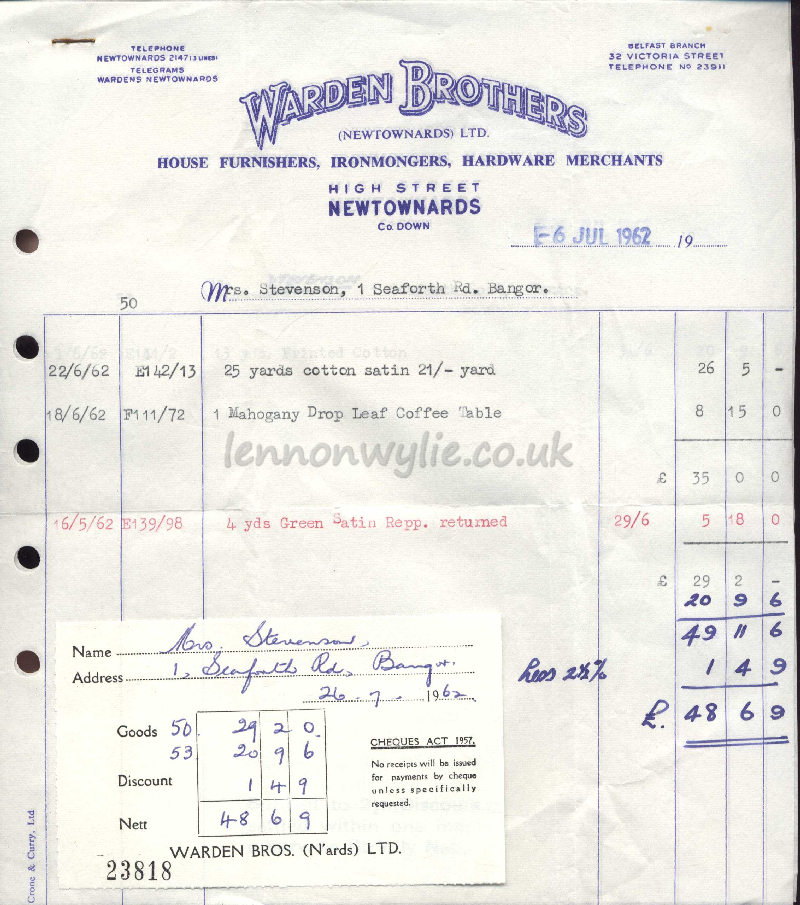 TELEPHONE
NEWTOWNARDS 2147 (3 LINES)
TELEGRAMS
WARDENS NEWTOWNARDS
BELFAST BRANCH
32 VICTORIA STREET
TELEPHONE No 23911
WARDEN BROTHERS
(NEWTOWNARDS) LTD.
HOUSE FURNISHERS, IRONMONGERS, HARDWARE MERCHANTS
HIGH STREET
NEWTOWNARDS
Co. DOWN
-6 JUL 1962 19
Mrs. Stevenson, 1 Seaforth Rd. Bangor.
50
13 yds. Printed Cotton
22/6/62 E142/13 25 yards cotton satin 21/- yard 26 5 -
18/6/62 F111/72 1 Mahogany Drop Leaf Coffee Table 8 15 0
lennonwylie.co.uk
£ 35 0 0
16/5/62 E139/98 4 yds Green Satin Repp. returned 29/6 5 18 0
£ 29 2 -
20 9 6
49 11 6
Less 2½% 1 4 9
£. 48 6 9
Name Mrs. Stevenson,
Address 1, Seaforth Rd, Bangor.
26-7-1962
Goods 50. 29 2 0.
53 20 9 6
Discount 1 4 9
Nett 48 6 9
CHEQUES ACT 1957.
No receipts will be issued
for payments by cheque
unless specifically
requested.
WARDEN BROS. (N'ards) LTD.
23818
Crone & Curry, Ltd